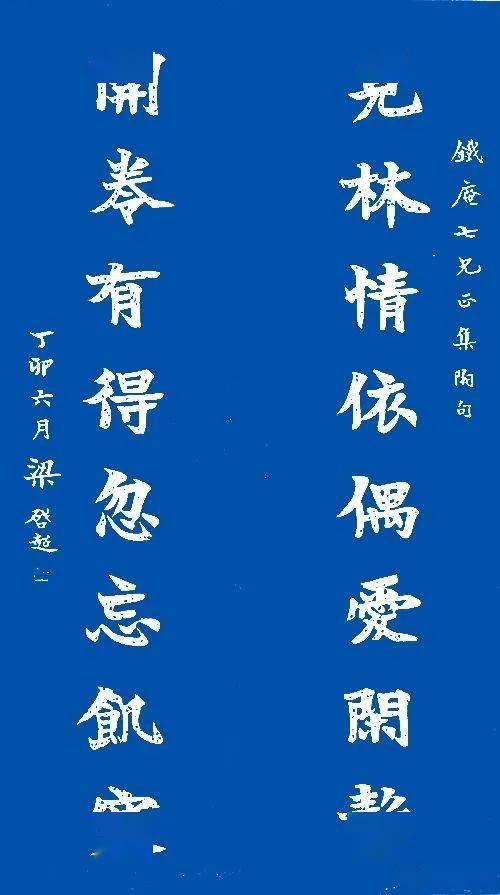 鐵庵七兄正集陶句
林情依偶愛閑
開卷有得忽忘飢
丁卯六月梁啓超